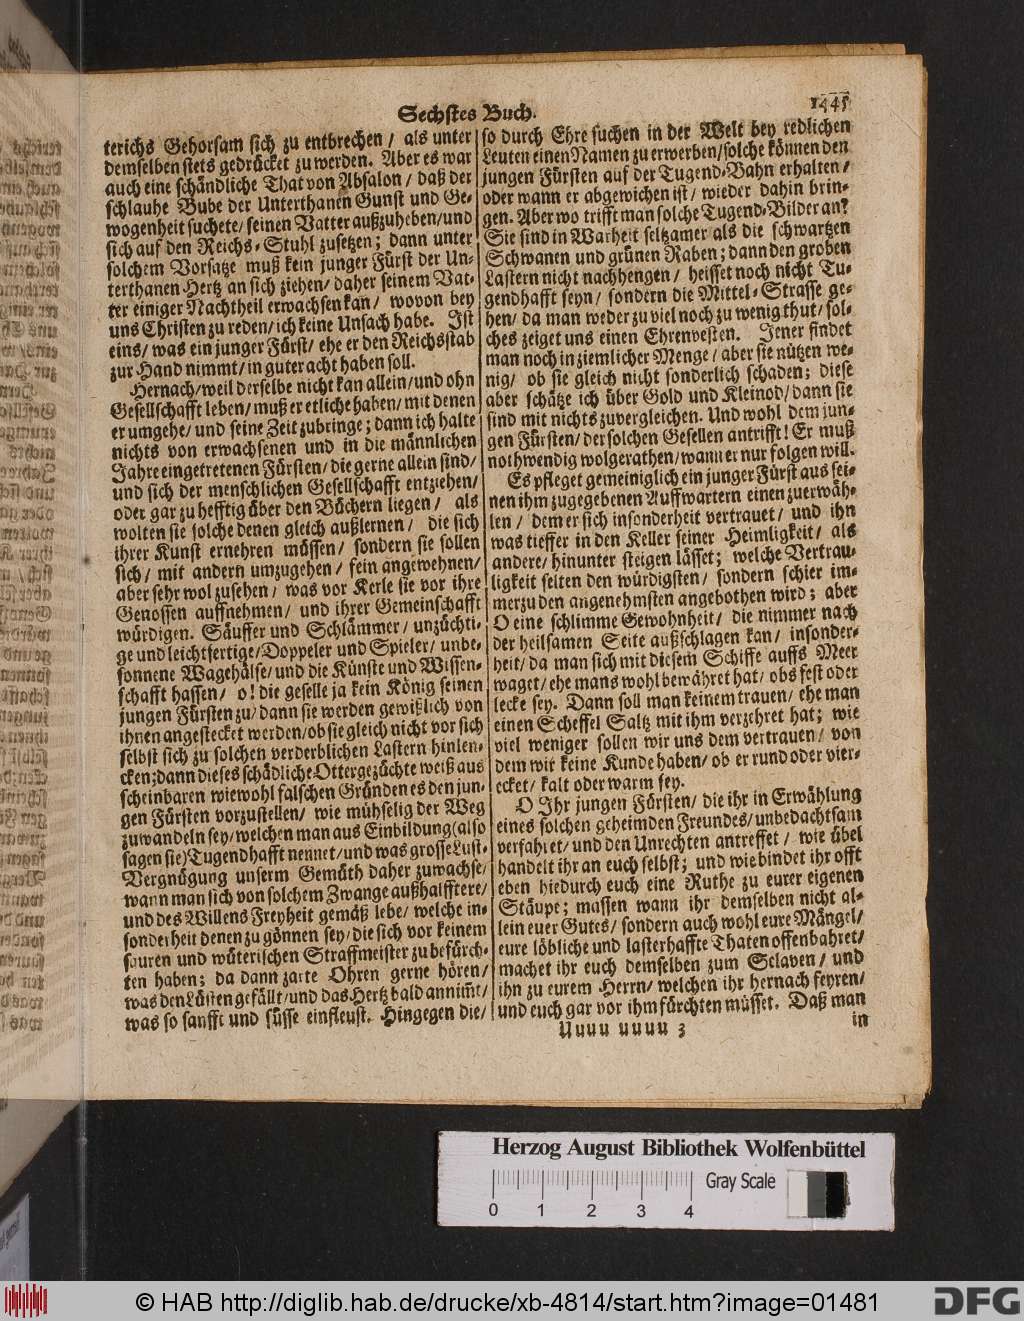 Sechstes Buch.
1445
terichs Gehorsam sich zu entbrechen/ als unter
demselben stets gedrücket zu werden. Aber es war
auch eine schändliche That von Absalon/ daß der
schlauhe Bube der Unterthanen Gunst und Ge-
wogenheit suchete/ seinen Vatter außzuheben/ und
sich auf den Reichs-Stuhl zusetzen; dann unter
solchem Vorsatze muß kein junger Fürst der Un-
terthanen Hertz an sich ziehen/ daher seinem Vat-
ter einiger Nachtheil erwachsen kan/ wovon bey
uns Christen zu reden/ ich keine Unsach habe. Ist
eins/ was ein junger Fürst/ ehe er den Reichsstab
zur Hand nimmt/ in guter acht haben soll.
Hernach/ weil derselbe nicht kan allein/ und ohn
Gesellschafft leben/ muß er etliche haben/ mit denen
er umgehe/ und seine Zeit zubringe; dann ich halte
nichts von erwachsenen und in die männlichen
Jahre eingetretenen Fürsten/ die gerne allein sind/
und sich der menschlichen Gesellschafft entziehen/
oder gar zu hefftig über den Büchern liegen/ als
wolten sie solche denen gleich außlernen/ die sich
ihrer Kunst ernehren müssen/ sondern sie sollen
sich/ mit andern umzugehen/ fein angewehnen/
aber sehr wol zusehen/ was vor Kerle sie vor ihre
Genossen auffnehmen/ und ihrer Gemeinschafft
würdigen. Säuffer und Schlämmer/ unzüchti-
ge und leichtfertige/ Doppeler und Spieler/ unbe-
sonnene Wagehälse/ und die Künste und Wissen-
schafft hassen/ o! die geselle ja kein König seinen
jungen Fürsten zu/ dann sie werden gewißlich von
ihnen angestecket werden/ ob sie gleich nicht vor sich
selbst sich zu solchen verderblichen Lastern hinlen-
cken; dann dieses schädliche Ottergezüchte weiß aus
scheinbaren wiewohl falschen Gründen es den jun-
gen Fürsten vorzustellen/ wie mühselig der Weg
zuwandeln sey/ welchen man aus Einbildung (also
sagen sie) Tugendhafft nennet/ und was grosse Lust-
Vergnügung unserm Gemüth daher zuwachse/
wann man sich von solchem Zwange außhalfftere/
und des Willens Freyheit gemäß lebe/ welche in-
sonderheit denen zu gönnen sey/ die sich vor keinem
sauren und wüterischen Straffmeister zu befürch-
ten haben; da dann zarte Ohren gerne hören/
was den Lüsten gefällt/ und das Hertz bald annim̃t/
was so sanfft und süsse einfleust. Hingegen die/
so durch Ehre suchen in der Welt bey redlichen
Leuten einen Namen zu erwerben/ solche können den
jungen Fürsten auf der Tugend-Bahn erhalten/
oder wann er abgewichen ist/ wieder dahin brin-
gen. Aber wo trifft man solche Tugend-Bilder an?
Sie sind in Warheit seltzamer als die schwartzen
Schwanen und grünen Raben; dann den groben
Lastern nicht nachhengen/ heisset noch nicht Tu-
gendhafft seyn/ sondern die Mittel-Strasse ge-
hen/ da man weder zu viel noch zu wenig thut/ sol-
ches zeiget uns einen Ehrenvesten. Jener findet
man noch in ziemlicher Menge/ aber sie nützen we-
nig/ ob sie gleich nicht sonderlich schaden; diese
aber schätze ich über Gold und Kleinod/ dann sie
sind mit nichts zuvergleichen. Und wohl dem jun-
gen Fürsten/ der solchen Gesellen antrifft! Er muß
nothwendig wolgerathen/ wann er nur folgen will.
Es pfleget gemeiniglich ein junger Fürst aus sei-
nen ihm zugegebenen Auffwartern einen zuerwäh-
len/ dem er sich insonderheit vertrauet/ und ihn
was tieffer in den Keller seiner Heimligkeit/ als
andere/ hinunter steigen lässet; welche Vertrau-
ligkeit selten den würdigsten/ sondern schier im-
merzu den angenehmsten angebothen wird; aber
O eine schlimme Gewohnheit/ die nimmer nach
der heilsamen Seite außschlagen kan/ insonder-
heit/ da man sich mit diesem Schiffe auffs Meer
waget/ ehe mans wohl bewähret hat/ obs fest oder
lecke sey. Dann soll man keinem trauen/ ehe man
einen Scheffel Saltz mit ihm verzehret hat; wie
viel weniger sollen wir uns dem vertrauen/ von
dem wir keine Kunde haben/ ob er rund oder vier-
ecket/ kalt oder warm sey.
O Ihr jungen Fürsten/ die ihr in Erwählung
eines solchen geheimden Freundes/ unbedachtsam
verfahret/ und den Unrechten antreffet/ wie übel
handelt ihr an euch selbst; und wie bindet ihr offt
eben hiedurch euch eine Ruthe zu eurer eigenen
Stäupe; massen wann ihr demselben nicht al-
lein euer Gutes/ sondern auch wohl eure Mängel/
eure löbliche und lasterhaffte Thaten offenbahret/
machet ihr euch demselben zum Sclaven/ und
ihn zu eurem Herrn/ welchen ihr hernach feyren/
und euch gar vor ihm fürchten müsset. Daß man
Uuuu uuuu 3
in
Herzog August Bibliothek Wolfenbüttel
Gray Scale
0 1 2 3 4
© HAB http://diglib.hab.de/drucke/xb-4814/start.htm?image=01481
DFG